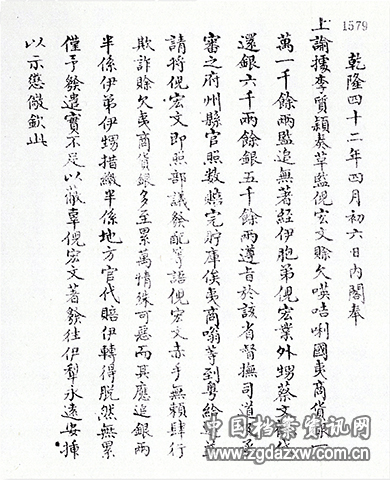 1579
乾隆四十二年四月初六日內閣奉
上諭據李質穎奏革監倪宏文賒欠嘆咭唎國夷商貨銀一
萬一千餘兩監追無著經伊胞弟倪宏業外甥蔡文
還銀六千兩餘銀五千餘兩遵旨於該省督撫司道
審之府州縣官照數賠完貯庫俟夷商嗡等到粵給
請將倪宏文即照部議發配等語倪宏文赤手無賴肆行
欺詐賒欠夷商貨銀多至累萬情殊可惡而其應追銀兩
半係伊弟伊甥措繳半係地方官代賠伊轉得脫然無累
僅予發遣實不足以蔽辜倪宏文著發往伊犁永遠安插
以示懲儆欽此
中国档案资讯网
www.zgdazxw.com.cn